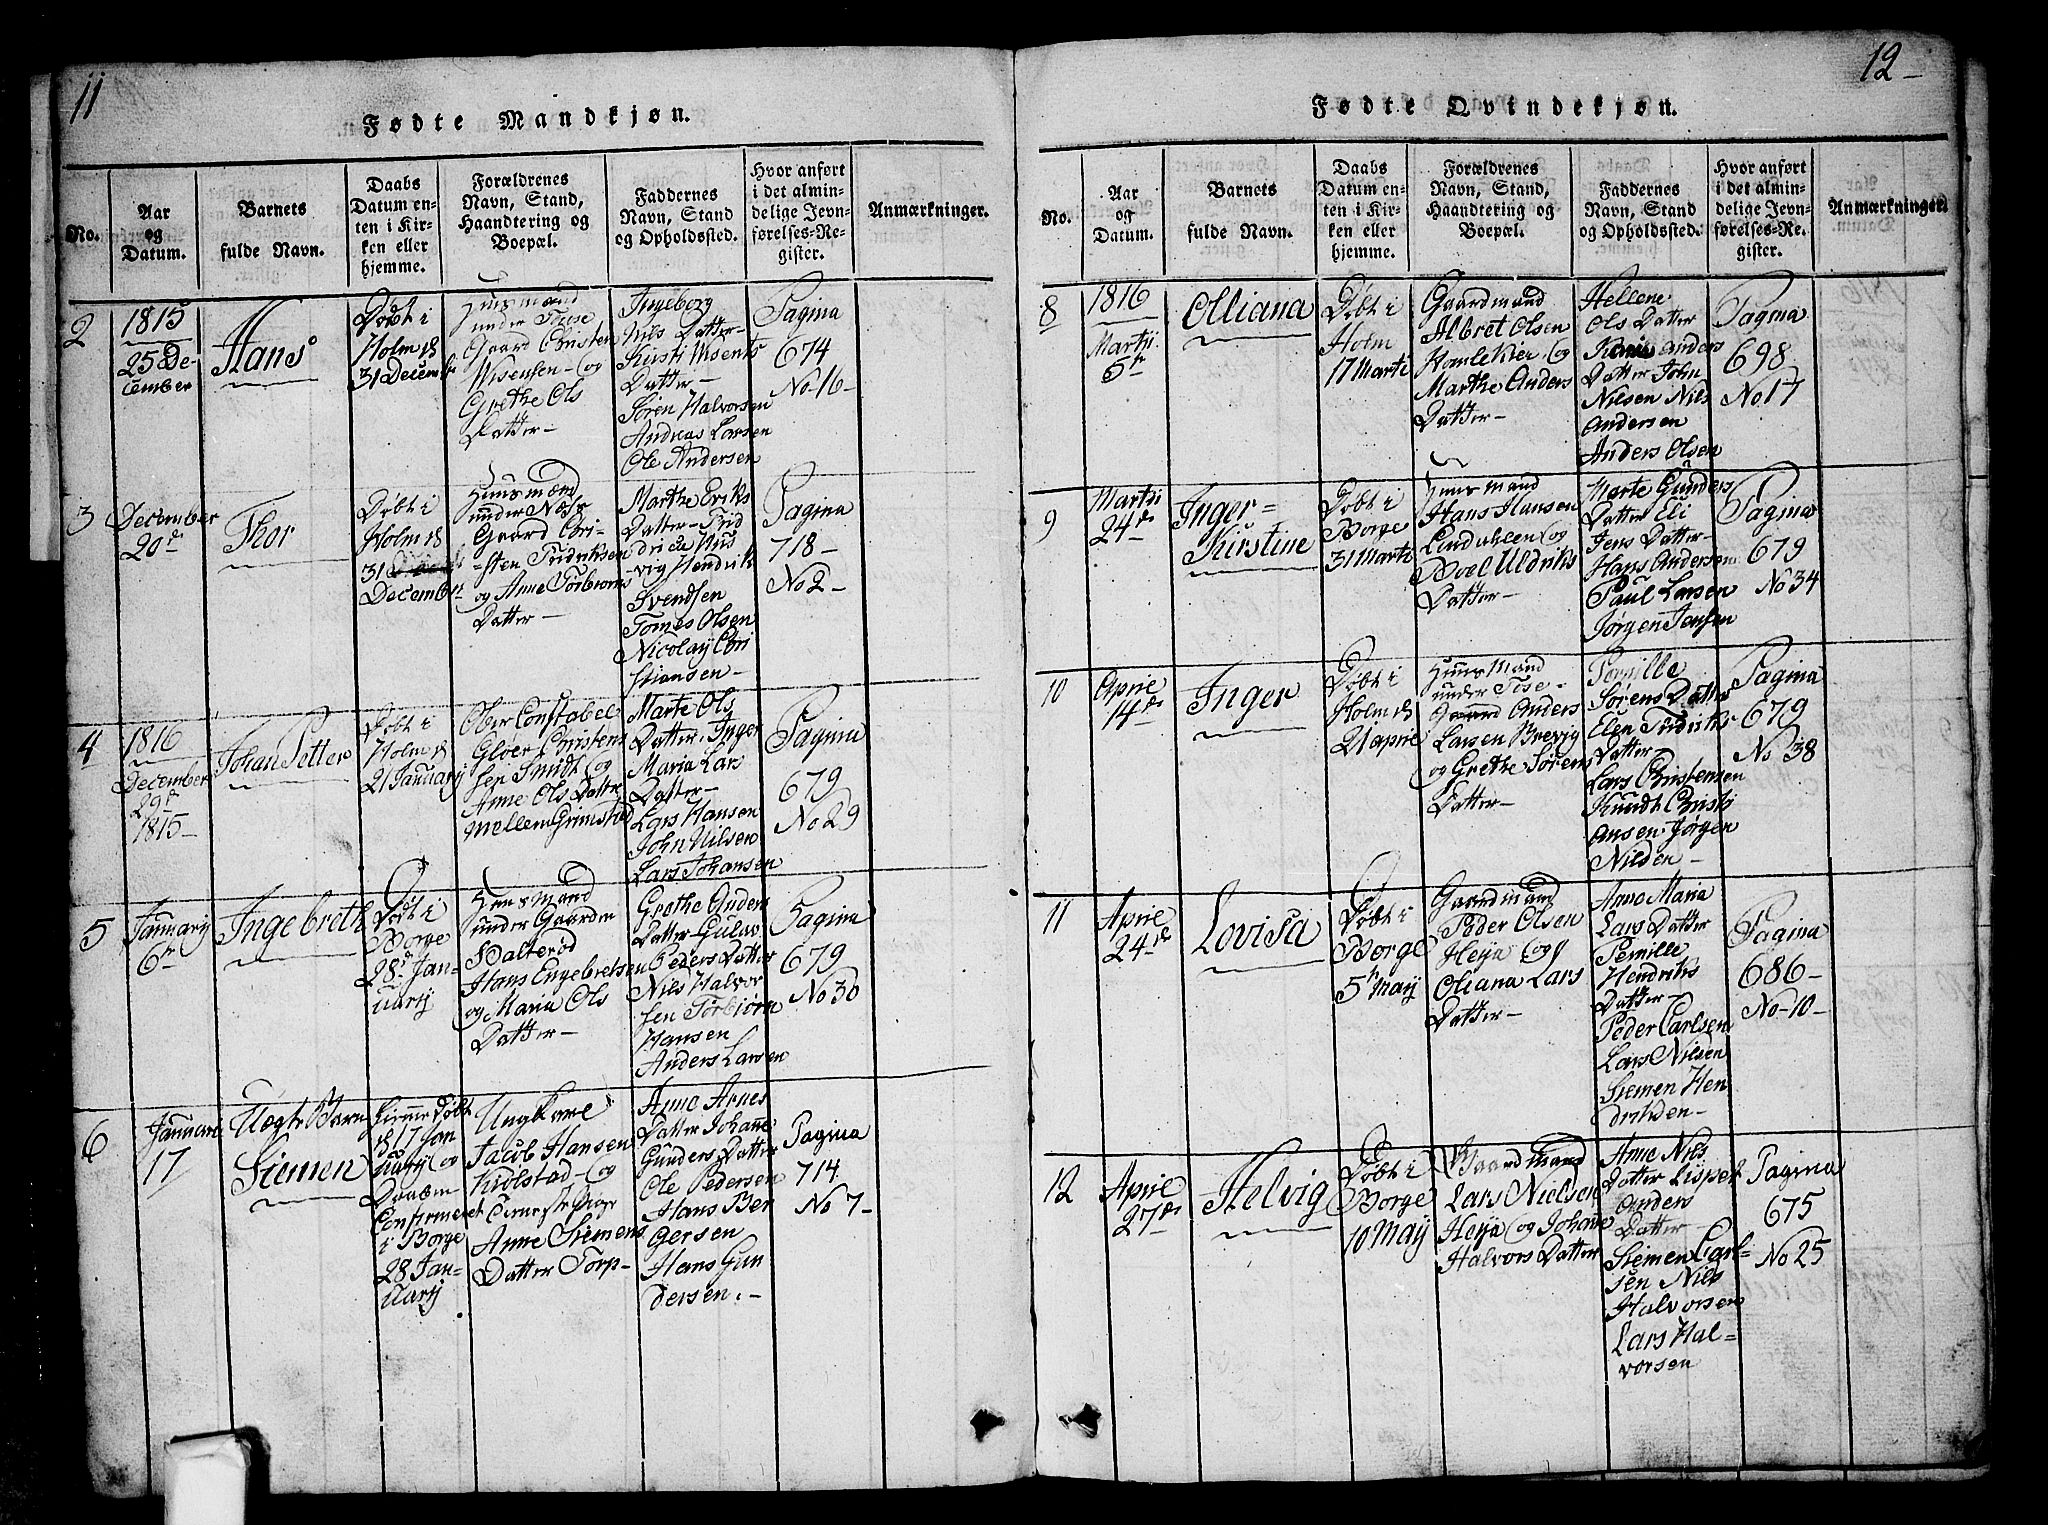 11
Fødte Mandkjøn.
No.
Aar
og
Datum.
Barnets
fulde Navn.
Daabs
Datum en-
ten i Kir-
ken eller
hjemme.
Forældrenes
Navn, Stand,
Haandtering og
Boepæl.
Faddernes
Navn, Stand
og Opholdssted.
Hvor anført
i det almin-
delige Jevn-
førelses-Re-
gister.
Anmærkninger.
2
1815
25 De-
cember
Hans
Døbt i
Holm d
31 Decemb
Huusmand
under Tose
Gaard Cristen
Nisensen - og
Grethe Ols
Datter -
Ingeborg
Nils Datter -
Kirsti Nisents
Datter -
Sören Halvorsen
Andreas Larsen
Ole Andersen
Pagina
674
No 16 -
3
December
20de
Thor
Döbt i
Holm d
31
December
Huusmand
under Næs
Gaard Cri-
-sten Fridriksen
og Anne Torbiorns
Datter -
Marthe Eriks
Datter - Frid
dricke Hus
-vig Hendrik
Svendsen
Tomes Olsen
Nicolay Cri
stiansen -
Pagina
718 -
No 2 -
4
1816
December
29de
1815 -
Johan Petter
Döbt i
Holm d
21 January
Ober Constabel
Gloer Christens
sen Smidt og
Anne Ols Datter
mellem Grimstad
Marte Ols
Datter. Inger
Maria Lars
Datter -
Lars Hansen
John Nilsen
Lars Johansen
Pagina
679
No 29
5
January
6te
Ingebreth
Döbt i
Borge
28de Jan-
uary
Huusmand
under Gaarden
Balteröd
Hans Engebretsen
og Maria Ols
Datter -
Grethe Anders
Datter - Gulav
Peders Datter
Nils Halvor
sen Torbiörn
Hansen
Anders Larsen
Pagina
679
No 30
6
Januari
17
Uægte Barn
Siemen
Hiemme Döbt
d 17 Jan
uary og
Daaben
Confirmeret
i Borge
28 Jan-
uary
Ungkarl
Jacob Hansen
Kiölstad - og
Tieneste Pige
Anne Siemens
Datter Torp -
Anne Arnes
Datter Johanne
Gunders Datter
Ole Pedersen
Hans Ber
gersen
Hans Gun
dersen. -
Pagina
714
No 7 -
12 -
Fødte Qvindekjøn.
No.
Aar
og
Datum.
Barnets
fulde Navn.
Daabs
Datum en-
ten i Kir-
ken eller
hjemme.
Forældrenes
Navn, Stand,
Haandtering og
Boepæl.
Faddernes
Navn, Stand
og Opholdssted.
Hvor anført
i det almin-
delige Jevn-
førelses-Re-
gister.
Anmærkninger.
8
1816
Martii
5te
Olliana
Döbt i
Holm
17 Marti
Gaardmand
Albret Olsen
Karlekier og
Marthe Anders
Datter -
Hellene
Ols Datter
Karie Anders
Datter John
Nilsen Nils
Andersen
Anders Olsen
Pagina
698
No 17
9
Martii
24de
Inger =
Kirstine
Döbt i
Borge
31 Marti
Huusmand
Hans Hansen
Lindahlen og
Boel Uldriks
Datter -
Marte Gunders
Datter Eli
Jens Datter -
Hans Andersen
Paul Larsen
Jörgen Jensen
Pagina
679
No 34
10
Aprie
14de
Inger
Döbt i
Holm d
21 aprie
Huusmand
under Tose -
Gaard Anders
Larsen Brevig
og Grethe Sörens
Datter -
Pernille
Sörens Datter
Elen Fridriks
Datter
Lars Christensen
Knudt Cristi
ansen Jörgen
Nilsen -
Pagina
679
No 38
11
Aprie
24de
Lovisa
Döbt i
Borge
5te May
Gaardmand
Peder Olsen
Heija og
Oleana Lars
Datter -
Anne Maria
Lars Datter
Pernille
Hendriks
Datter -
Peder Carlsen
Lars Nilsen
Siemen Hen
driksen -
Pagina
686 -
No - 10 -
12
Aprie
27de
Helvig
Döbt i
Borge
10 May
Gaardmand
Lars Nielsen
Heija og Johanne
Halvors Datter
Anne Nils
Datter Lispet
Anders
Datter -
Siemen Carl-
sen Nils
Halvorsen
Lars Hal-
vorsen
Pagina
675
No 25